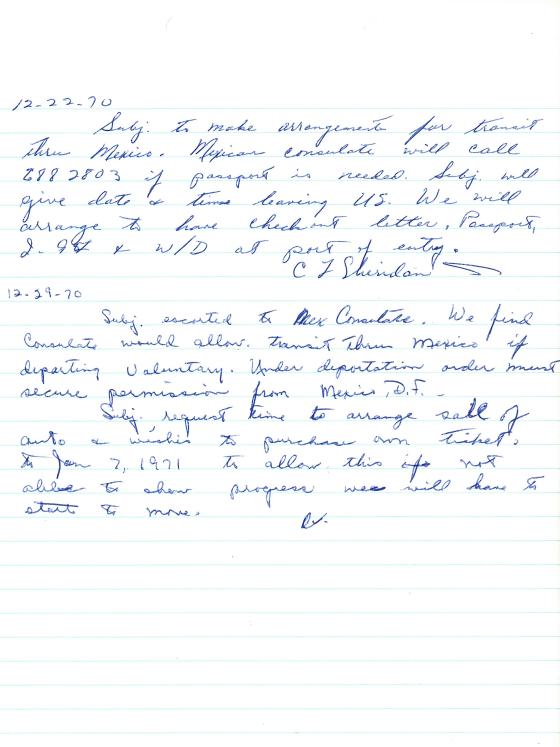 12-22-70
Subj. to make arrangements for transit
thru Mexico. Mexican consulate will call
688 2803 if passport is needed. Subj. will
give date & time leaving US. We will
arrange to have check out letter, Passport,
I-94 & W/D at port of entry.
C F Sheridan
12-29-70
Subj. escorted to Mex Consulate. We find
Consulate would allow transit thru Mexico if
departing voluntary. Under deportation order must
secure permission from Mexico, D.F. -
Subj. request time to arrange sale of
auto & wishes to purchase own ticket.
to Jan 7, 1971 to allow this if not
able to show progress we will have to
start to move.